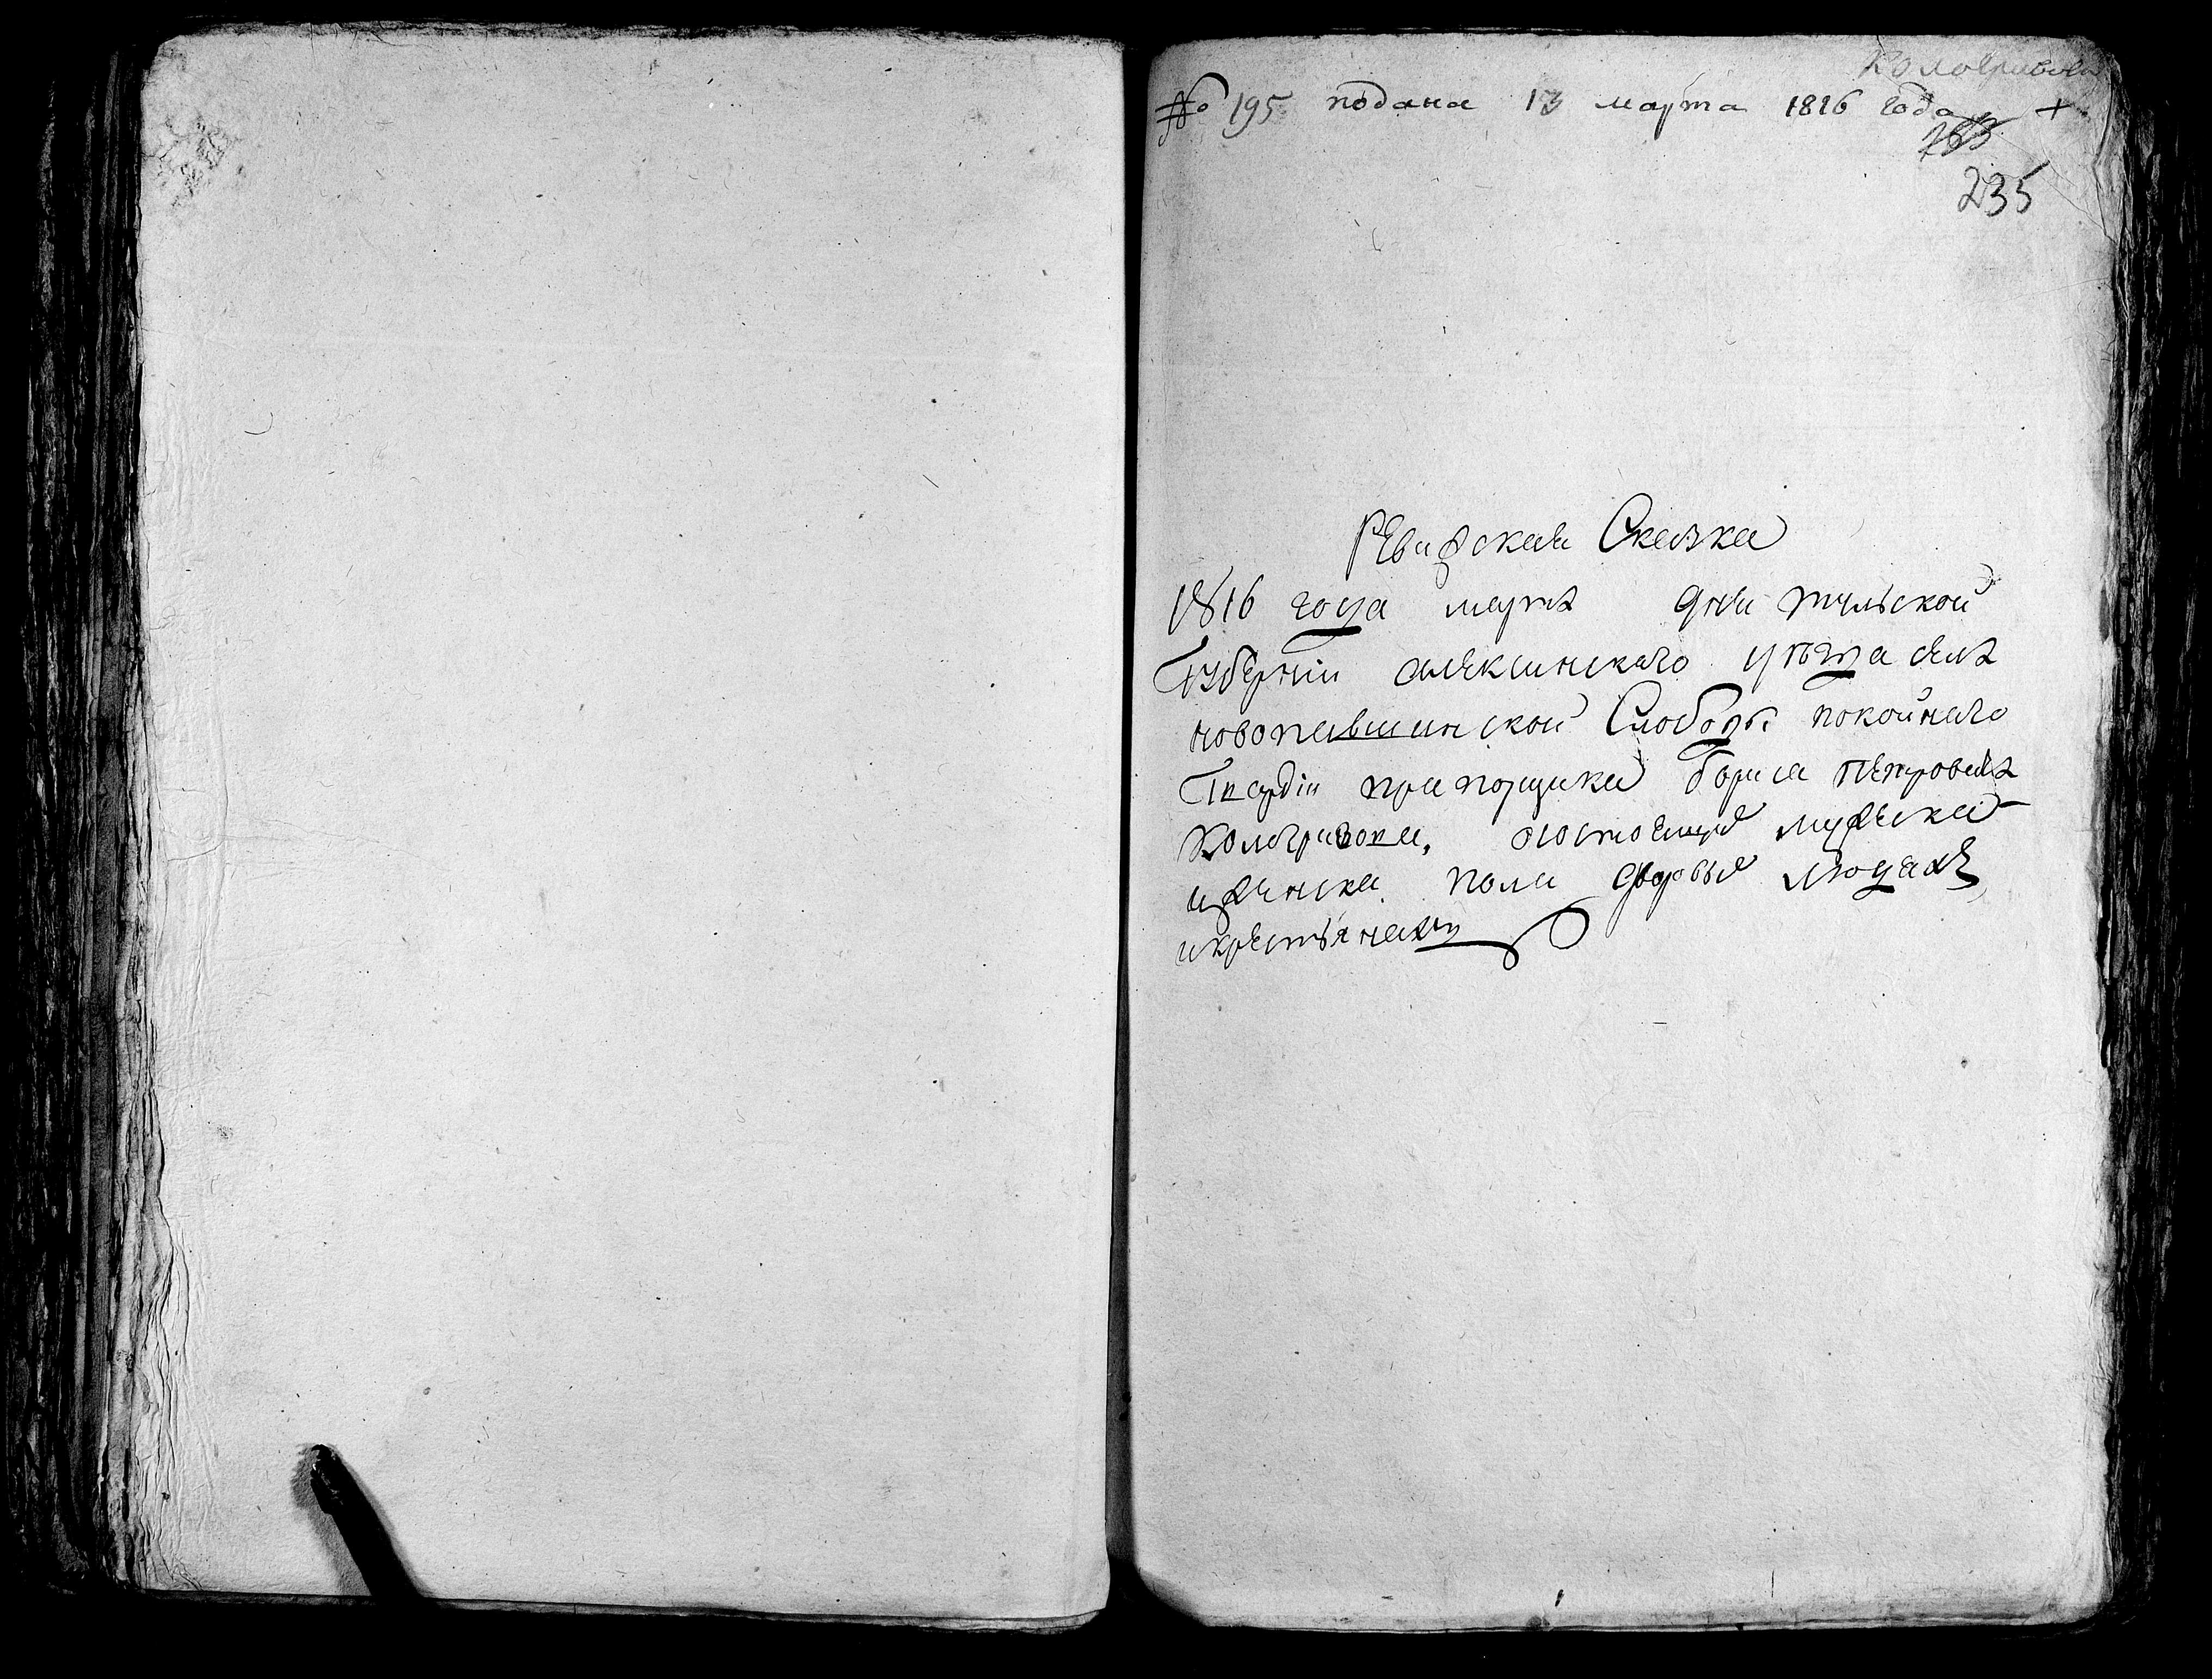 Кологривова
№ 195 подана 13 марта 1816 года +
235
Ревижская Сказка
1816 года марта дня тульской
Губернии алексинского уезда села
новопавшинской Слободы покойнаго
Гвардии прапорщика бориса петровича
Кологривова, осостоящих мужеска
иженска пола дворовых людях
икрестьянах